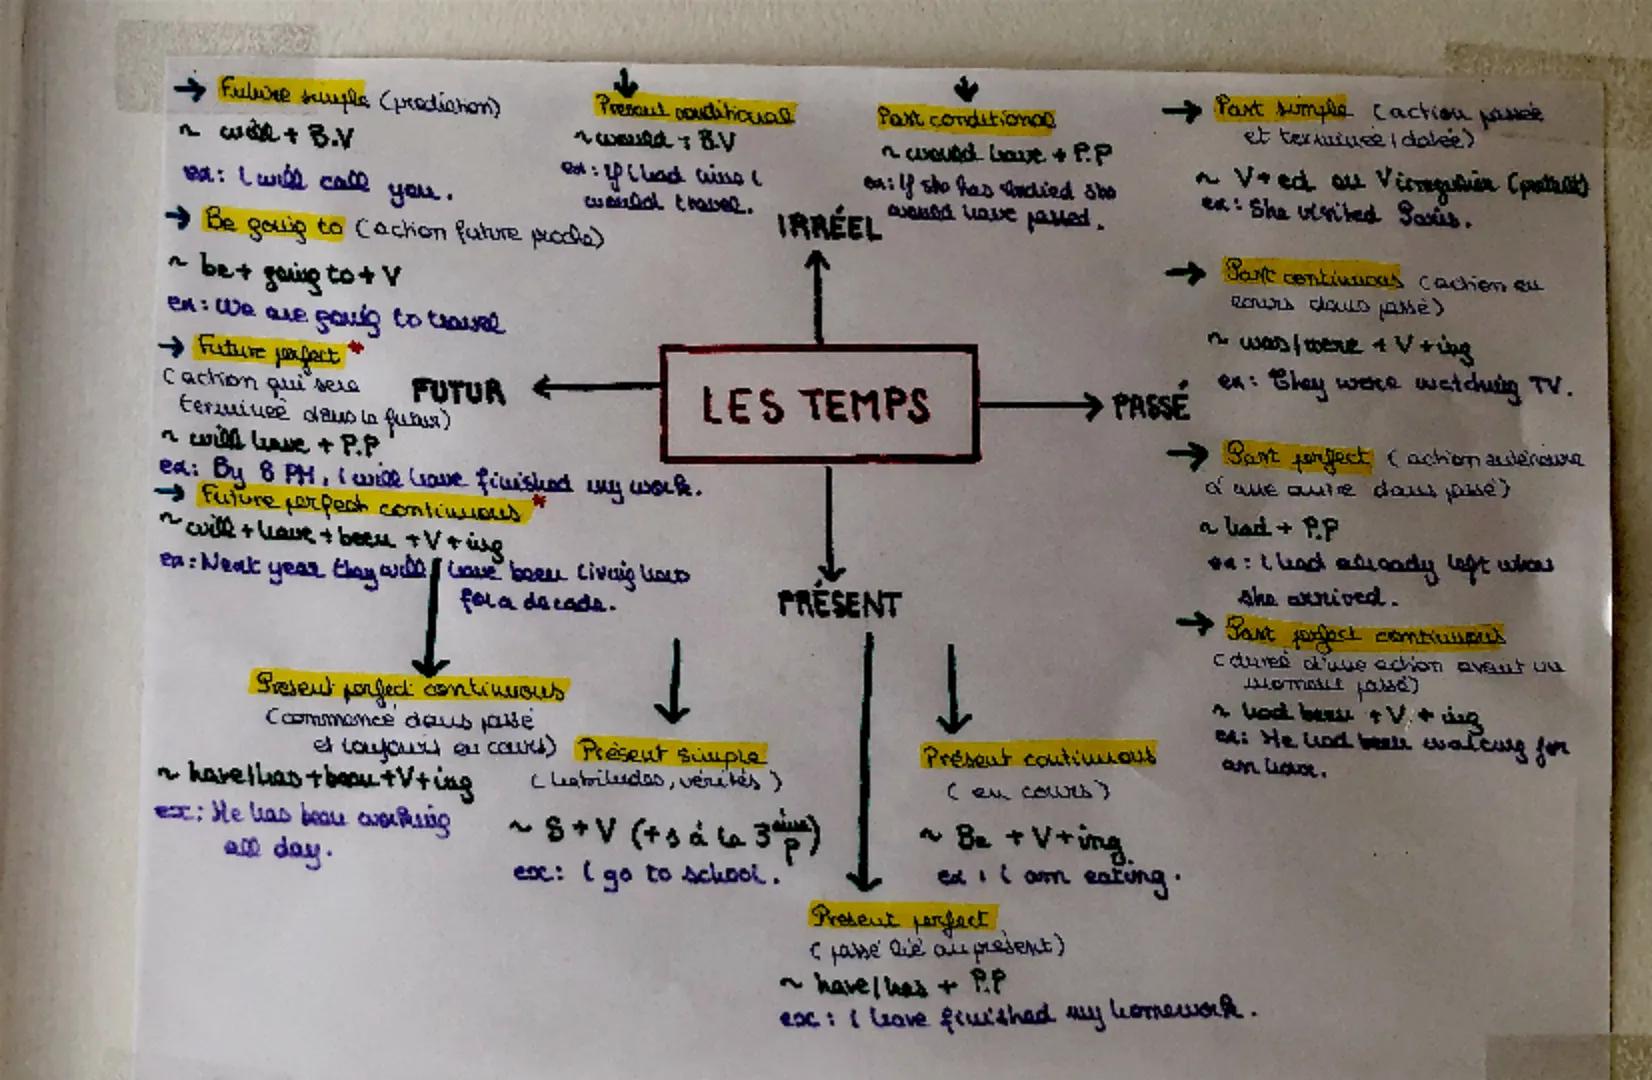 → Future simple (prediction)
~ will + B.V
ex: I will call you.
→ Be going to (action future proche)
~ be + going to + V
ex: We are going to travel
→ Future perfect *
(action qui sera
terminée dans le futur)
~ will have + P.P
ex: By 8 PM, I will have finished my work.
→ Future perfect continuous *
~ will + have + been + V + ing
ex: Next year they will have been living here
for a decade.
FUTUR
Present conditional
~ would + B.V
ex: If I had time I
would travel.
Past conditional
~ would have + P.P
ex: If she has studied she
would have passed.
IRRÉEL
LES TEMPS
PASSÉ
→ Past simple (action passée
et terminée, datée)
~ V+ed ou V irrégulier (prétérit)
ex: She visited Paris.
→ Past continuous (action en
cours dans passé)
~ was/were + V+ing
ex: They were watching TV.
→ Past perfect (action antérieure
à une autre dans passé)
~ had + P.P
ex: I had already left when
she arrived.
→ Past perfect continuous
(durée d'une action avant un
moment passé)
~ had been + V + ing
ex: He had been waiting for
an hour.
PRÉSENT
Present perfect continuous
(commencé dans passé
et toujours en cours)
~ have/has + been + V + ing
ex: He has been working
all day.
Présent simple
(habitudes, vérités)
~ S + V (+s à la 3ème p)
ex: I go to school.
Présent continuous
(en cours)
~ Be + V + ing.
ex: I am eating.
Present perfect
(passé lié au présent)
~ have/has + P.P
ex: I have finished my homework.